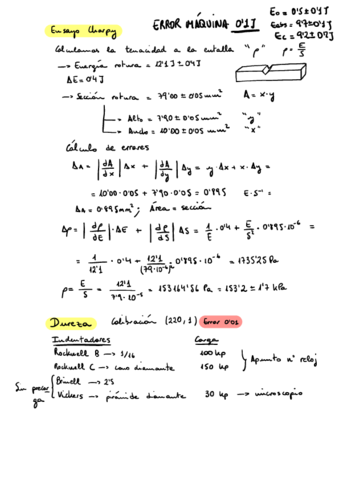 Ensayo Charpy
ERROR MÁQUINA 0'1J
E0 = 0'5 ± 0'1J
Eabs = 97 ± 0'1J
Ec = 92 ± 0'?J
Calculamos la tenacidad a la entalla "ρ" ρ = E/S
→ Energía rotura = 12'1J ± 0'4J
ΔE = 0'4J
→ Sección rotura = 79'00 ± 0'05 mm² A = x·y
→ Alto = 7'90 ± 0'05 mm² "y"
→ Ancho = 10'00 ± 0'05 mm² "x"
Cálculo de errores
ΔA = |dA/dx| Δx + |dA/dy| Δy = y·Δx + x·Δy =
= 10'00·0'05 + 7'90·0'05 = 0'895 E·S⁻¹
ΔA = 0'895 mm² ; Área = sección
Δρ = |dρ/dE|·ΔE + |dρ/dS| ΔS = 1/E · 0'4 + E/S² · 0'895·10⁻⁶
= 1/12'1 · 0'4 + 12'1/(79·10⁻⁶)² · 0'895·10⁻⁶ = 1735'25 Pa
ρ = E/S = 12'1/7'9·10⁻⁵ = 153164'56 Pa = 153'2 ± 1'7 kPa
Dureza Calibración (220,1) Error 0'01
Indentadores Carga
Rockwell B → 1/16 100 kp
Rockwell C → cono diamante 150 kp } Apunto nº reloj
Sin precarga { Brinell → 2'5
Vickers → pirámide diamante 30 kp → microscopio